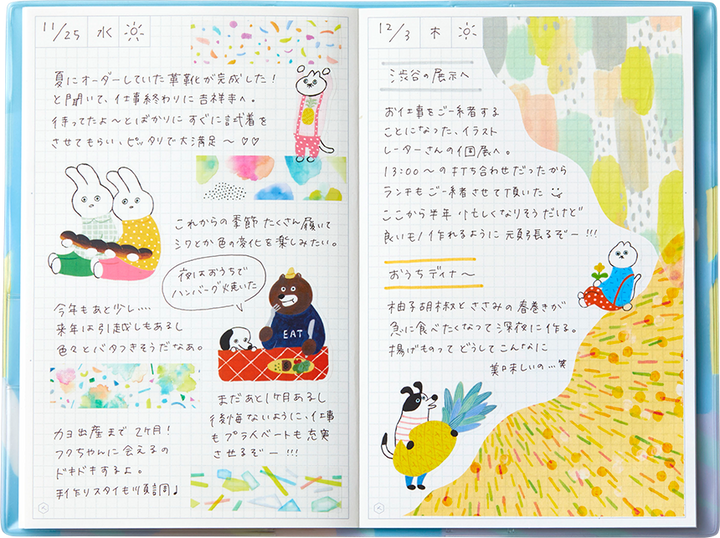 11/25 水
夏にオーダーしていた革靴が完成した!
と聞いて、仕事終わりに吉祥寺へ。
待ってたよ〜とばかりにすぐに試着を
させてもらい、ピッタリで大満足〜♡♡
これからの季節たくさん履いて
シワとか色の変化を楽しみたい。
夜はおうちで
ハンバーグ焼いた
EAT
今年もあと少し....
来年は引越しもあるし
色々とバタつきそうだなあ。
まだあと1ヶ月あるし
後悔ないように、仕事
もプライベートも充実
させるぞー!!!
カヨ出産まで2ヶ月!
フクちゃんに会えるの
ドキドキするよ。
手作りスタイも順調♪
12/3 木
渋谷の展示へ
お仕事をご一緒する
ことになった、イラスト
レーターさんの個展へ。
13:00〜の打ち合わせだったから
ランチもご一緒させて頂いた
ここから半年 忙しくなりそうだけど
良いもの作れるように 頑張るぞー!!!
おうちディナ〜
柚子胡椒とささみの春巻きが
急に食べたくなって深夜に作る。
揚げものってどうしてこんなに
美味しいの...笑